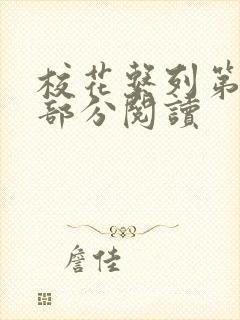 校花繫列第
部分閱讀
詹佳